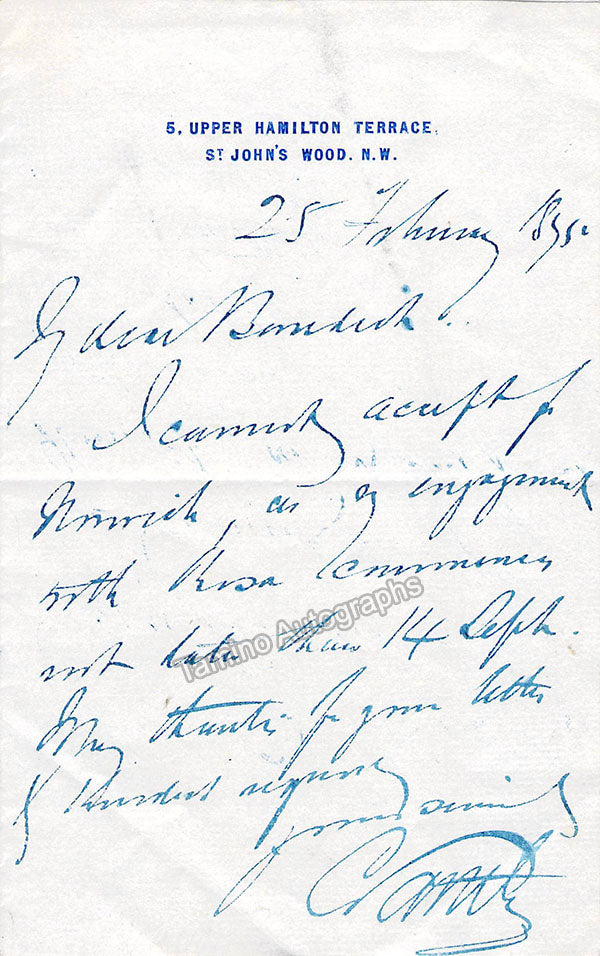 5, UPPER HAMILTON TERRACE,
ST JOHN'S WOOD. N.W.
25 February 1875.
My dear Benedict.
I cannot accept for
Norwich, as my engagement
with Rosa commences
not later than 14 Sept.
Many thanks for your letter
& kindest regards
yours sincerely
Tamino Autographs